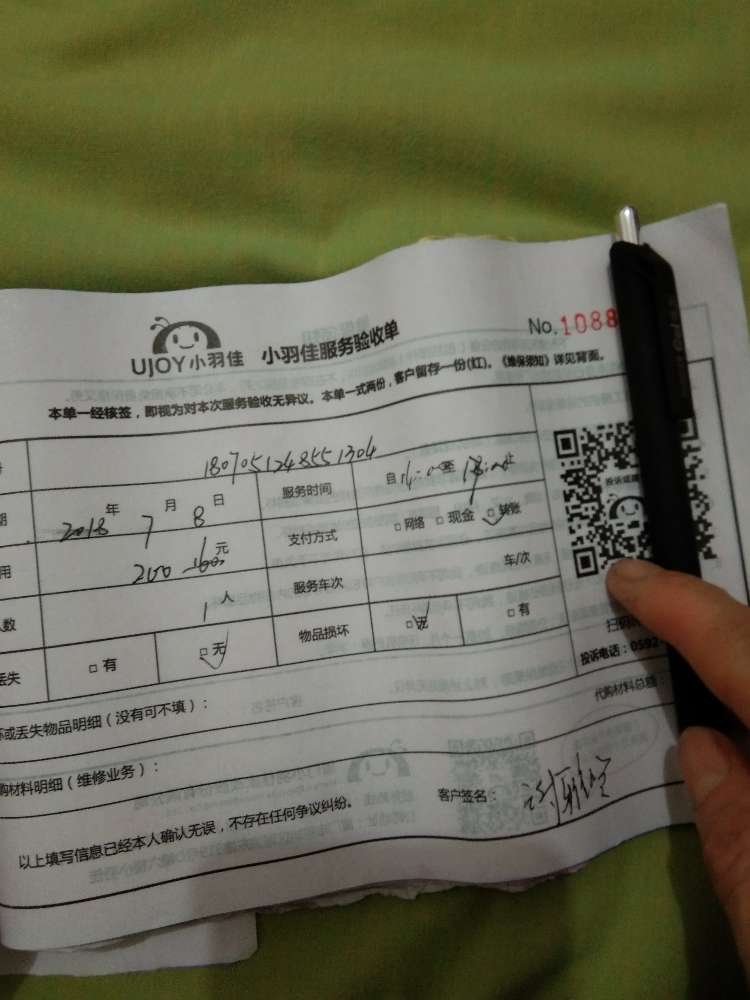 UJOY小羽佳 小羽佳服务验收单 No.1088
本单一经核签，即视为对本次服务验收无异议。本单一式两份，客户留存一份(红)。《维保须知》详见背面。
1807051248551304
期 2018年7月8日 服务时间 自 至 止
用 200 元 支付方式 □网络 □现金 □转账
人数 1人 服务车次 车/次
丢失 □有 □无 物品损坏 □无 □有
投诉电话：0592
坏或丢失物品明细（没有可不填）：
购材料明细（维修业务）： 代购材料总额：
以上填写信息已经本人确认无误，不存在任何争议纠纷。 客户签名：